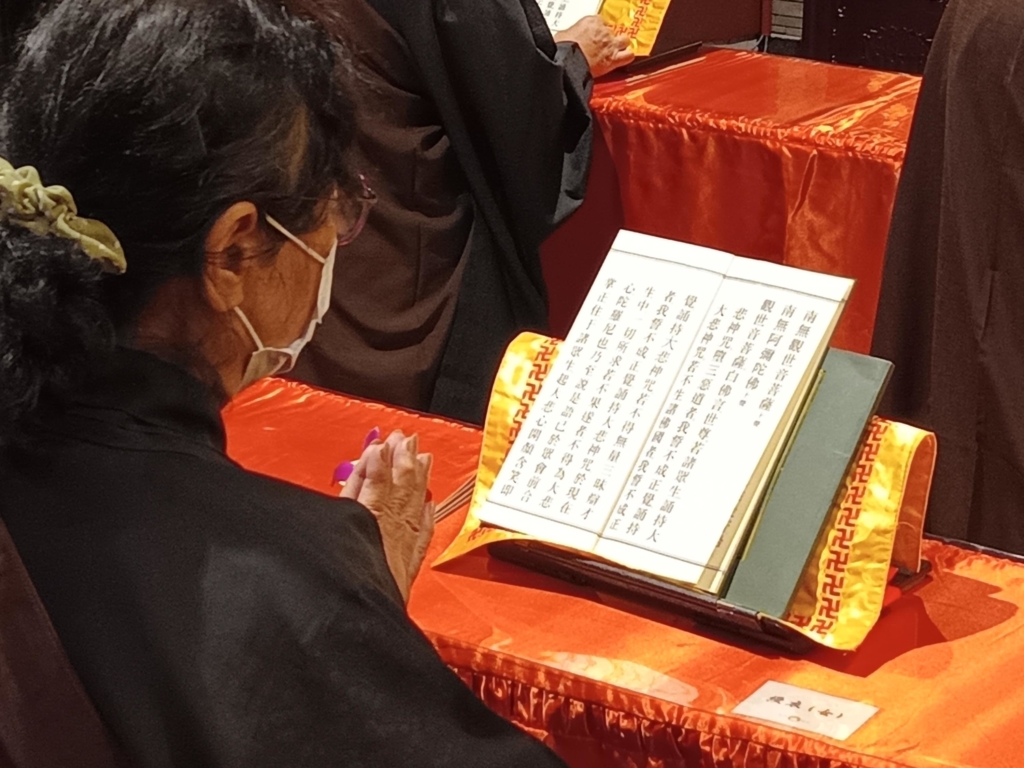 南無觀世音菩薩
南無阿彌陀佛
觀世音菩薩白佛言世尊若諸眾生誦持大
悲神咒墮三惡道者我誓不成正覺誦持
大悲神咒者不生諸佛國者我誓不成正
覺誦持大悲神咒者不得無量三昧辯才
者我誓不成正覺誦持大悲神咒於現在
生中一切所求若不果遂者不得為大悲
心陀羅尼也乃至說是語已於眾會前合
掌正住於諸眾生起大悲心開顏含笑即
(女)